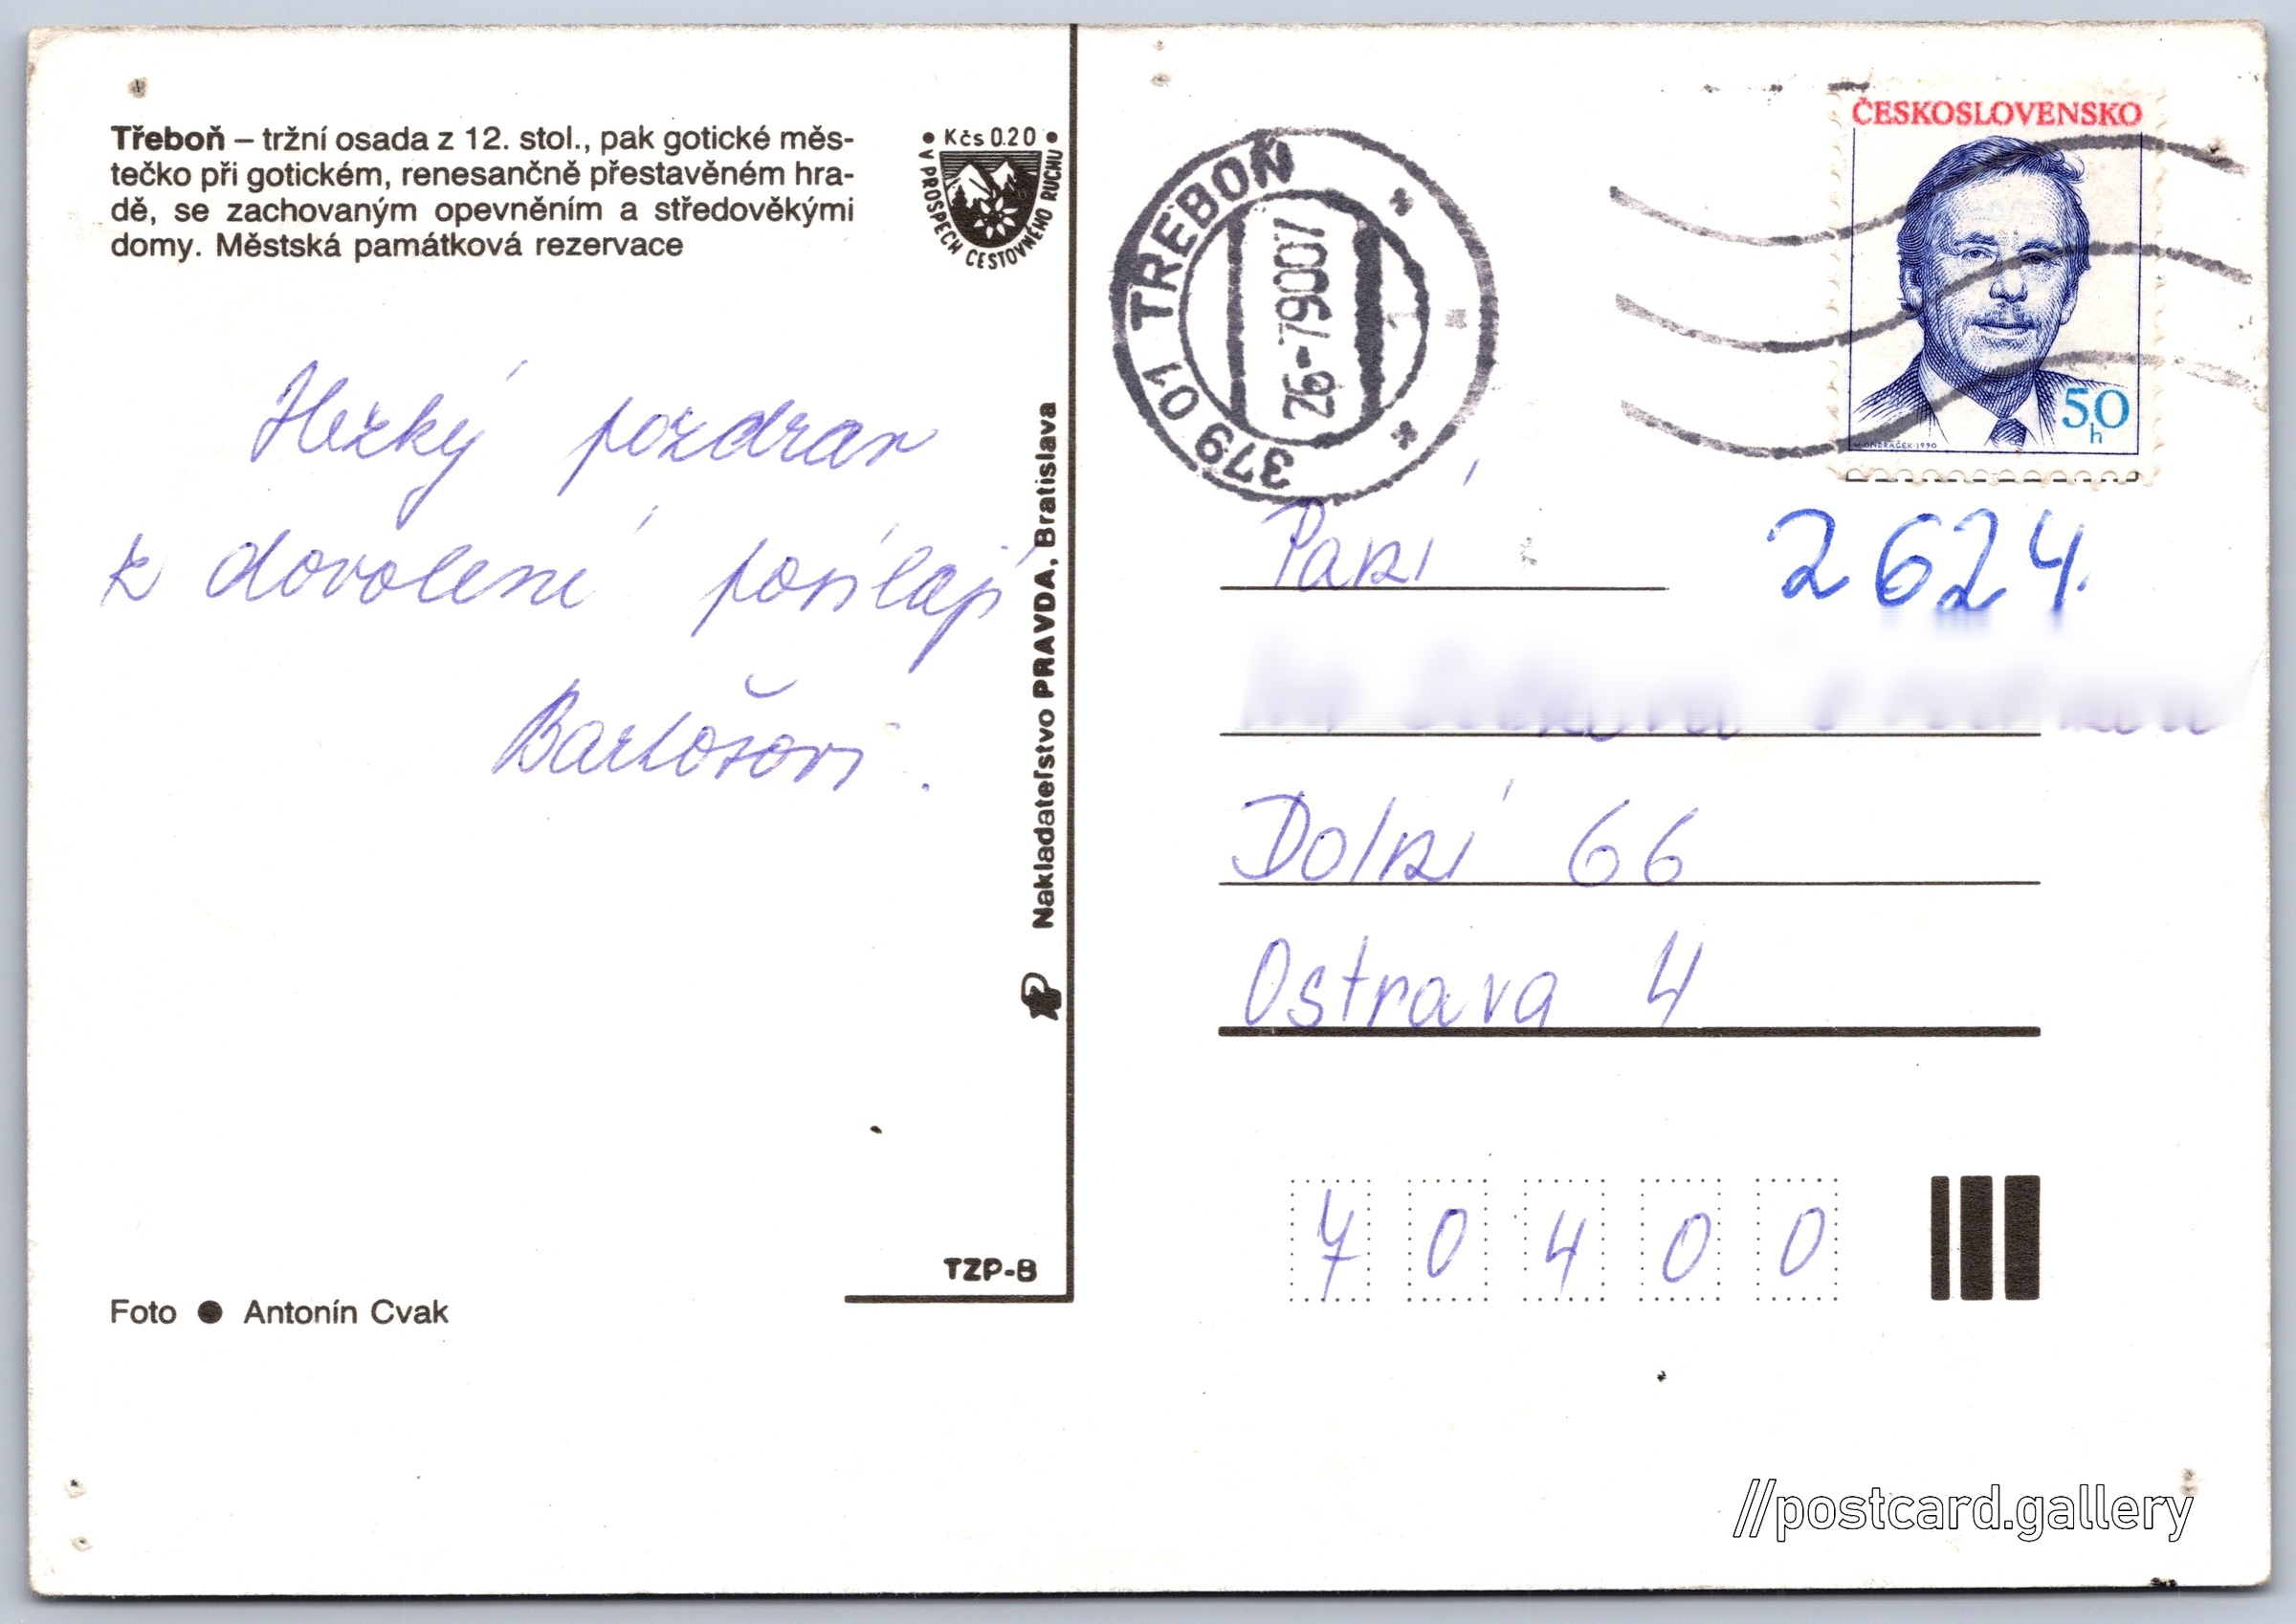 Třeboň – tržní osada z 12. stol., pak gotické měs-
tečko při gotickém, renesančně přestavěném hra-
dě, se zachovaným opevněním a středověkými
domy. Městská památková rezervace
• Kčs 0.20 •
V PROSPĚCH CESTOVNÉHO RUCHU
Hezký pozdrav
z dovolené posílají
Bartošovi.
Nakladateľstvo PRAVDA, Bratislava
TZP-8
Foto ● Antonín Cvak
379 01 TŘEBOŇ
26-79007
1
ČESKOSLOVENSKO
50
h
M.ONDRÁČEK·1990
2624.
Paní
Dolní 66
Ostrava 4
70400
//postcard.gallery